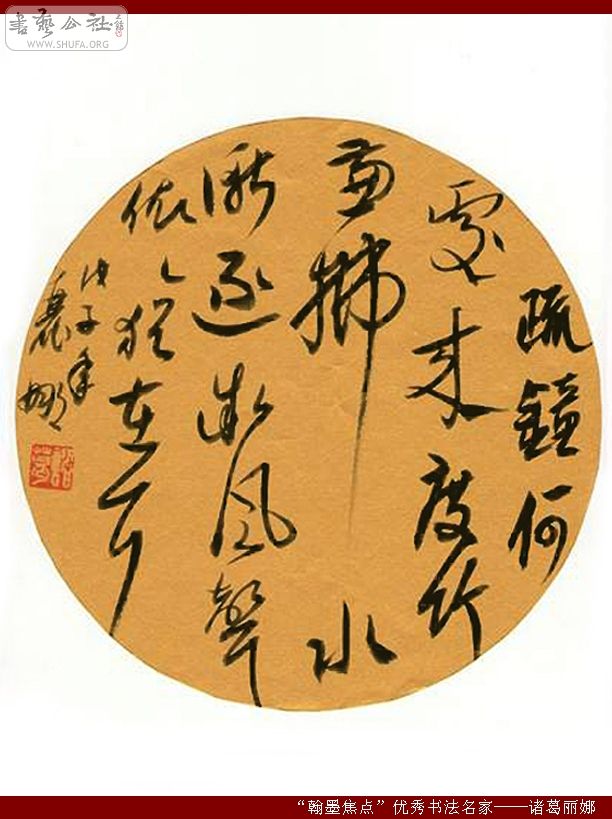 書藝公社
WWW.SHUFA.ORG
疏鐘何
處来度竹
兼拂水
漸逐微风聲
依々猶在耳
戊子年
麗娜
“翰墨焦点”优秀书法名家——诸葛丽娜